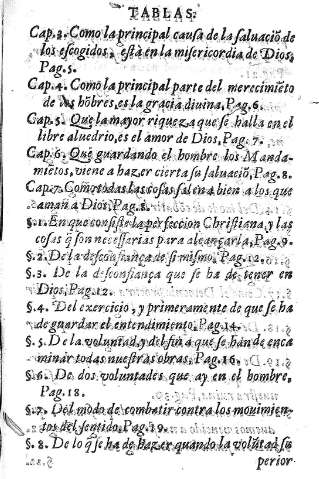 TABLAS.
Cap. 3. Como la principal causa de la saluaciõ de
los escogidos, està en la misericordia de Dios,
Pag. 5.
Cap. 4. Como la principal parte del merecimiẽto
de los hõbres, es la gracia diuina, Pag. 6.
Cap. 5. Que la mayor riqueza que se halla en el
libre aluedrio, es el amor de Dios, Pag. 7.
Cap. 6. Que guardando el hombre los Manda-
mietos, viene a hazer cierta su saluació, Pag. 8.
Cap. 7. Como todas las cosas salen a bien a los que
aman a Dios, Pag. 8.
§. 1. En que consiste la perfeccion Christiana, y las
cosas q̃ son necessarias para alcançarla, Pag. 9.
§. 2. De la desconfiança de si mismo, Pag. 12.
§. 3. De la desconfiança que se ha de tener en
Dios, Pag. 12.
§. 4. Del exercicio, y primeramente de que se ha
de guardar el entendimiento, Pag. 14.
§. 5. De la voluntad, y del fin a que se han de enca
minar todas nuestras obras, Pag. 16.
§. 6. De dos voluntades que ay en el hombre,
Pag. 18.
§. 7. Del modo de combatir contra los mouimien-
tos del sentido, Pag. 19.
§. 8. De lo q̃ se ha de hazer quando la volũtad su
perior